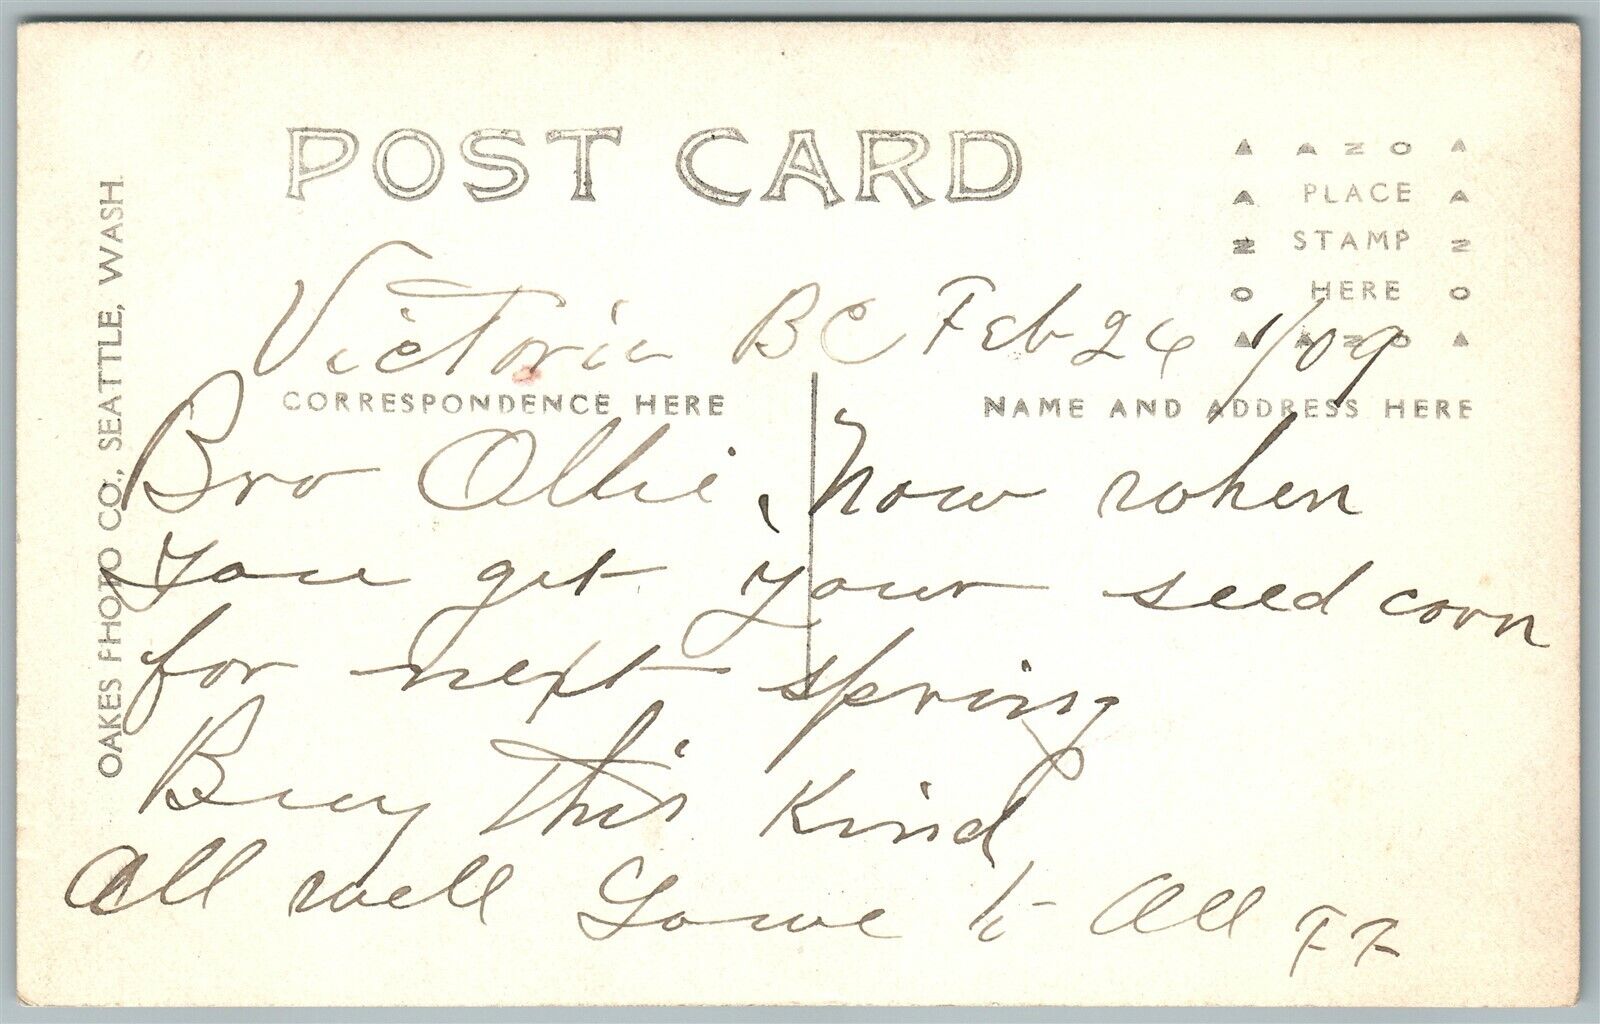 POST CARD
AZO
PLACE
STAMP
HERE
AZO
OAKES PHOTO CO., SEATTLE, WASH.
Victoria BC Feb 26 1/09
CORRESPONDENCE HERE
NAME AND ADDRESS HERE
Bro Ollie, Now when
you get your seed corn
for next spring
Buy this kind
All well Love to All FF